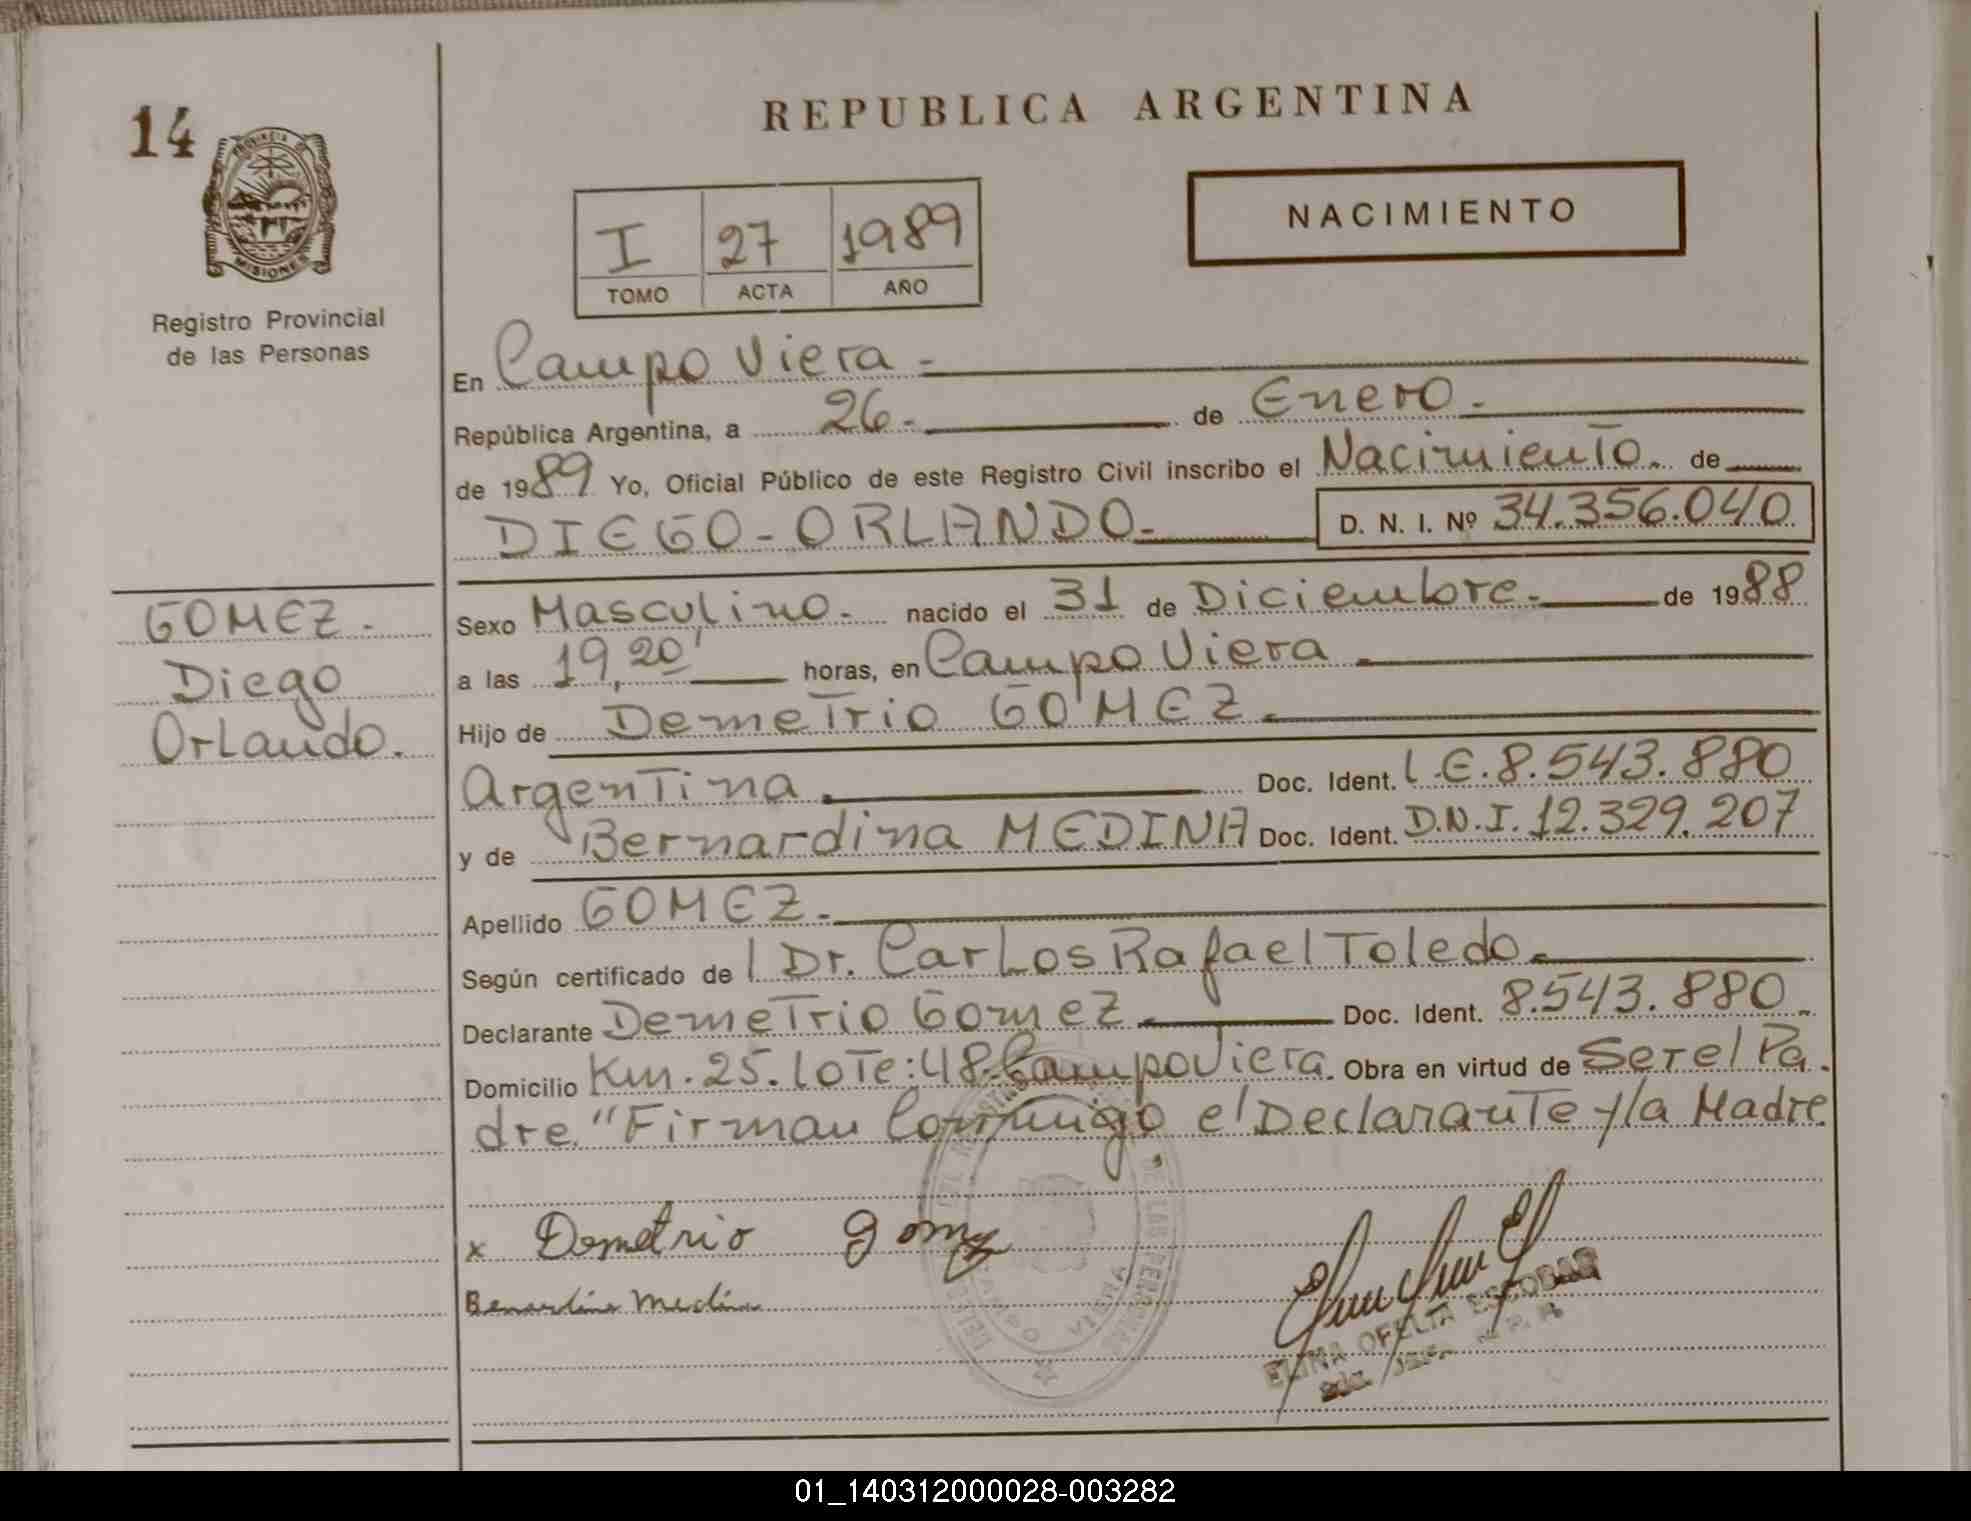 14
PROVINCIA DE
MISIONES
Registro Provincial
de las Personas
GOMEZ.
Diego
Orlando.
REPUBLICA ARGENTINA
I 27 1989
TOMO ACTA AÑO
NACIMIENTO
En Campo Viera -
República Argentina, a 26. de Enero.
de 1989 Yo, Oficial Público de este Registro Civil inscribo el Nacimiento. de
DIEGO-ORLANDO- D. N. I. Nº 34.356.040
Sexo Masculino. nacido el 31 de Diciembre. de 1988
a las 19,20' horas, en Campo Viera
Hijo de Demetrio GOMEZ.
Argentina. Doc. Ident. L.E.8.543.880
y de Bernardina MEDINA Doc. Ident. D.N.I. 12.329.207
Apellido GOMEZ.
Según certificado de l Dr. Carlos Rafael Toledo.
Declarante Demetrio Gomez. Doc. Ident. 8.543.880.
Domicilio Km. 25. Lote: 48. Campo Viera. Obra en virtud de Ser el Pa.
dre. "Firman Conmigo el Declarante y la Madre.
x Demetrio gomez
Bernardina Medina
DE LAS PERSONAS
ELIMA OFELIA ESCOBAR
01_140312000028-003282